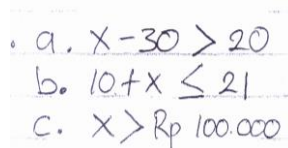 . a. x - 30 > 20
b. 10 + x ≤ 21
c. x > Rp 100.000